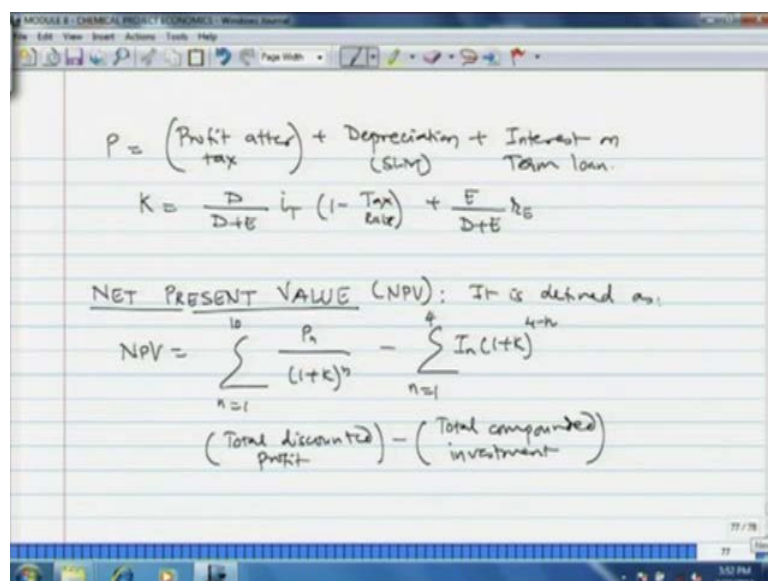 MODULE 8 - CHEMICAL PROJECT ECONOMICS - Windows Journal
File Edit View Insert Actions Tools Help
Page Width
P = (Profit after tax) + Depreciation (SLM) + Interest on Term loan.
K = D/(D+E) i_T (1 - Tax Rate) + E/(D+E) r_E
NET PRESENT VALUE (NPV): It is defined as:
NPV = ∑_{n=1}^{10} P_n/(1+K)^n - ∑_{n=1}^{4} I_n (1+K)^{4-n}
(Total discounted profit) - (Total compounded investment)
77 / 78
77
3:52 PM